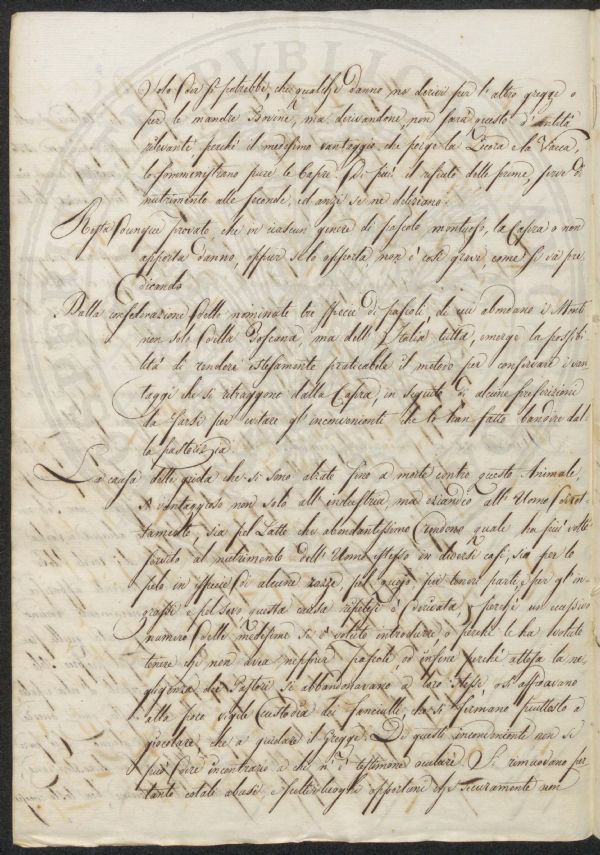 solo Suol si potrebbe, che qualche danno ne derivi per l'altro gregge o
per le mandre Bovine, ma derivandone, non sarà questo d'entità
rilevante, perché il medesimo vantaggio, che porge la Pecora e la Vacca,
lo somministrano pure le Capre. Di più il rifiuto delle prime, serve di
nutrimento alle seconde, ed anzi se ne deliziano.
Resta dunque provato, che in ciascun genere di pascolo montuoso, la Capra o non
apporta danno, oppur se lo apporta, non è così grave, come si và pre
dicando
Dalla considerazione delle nominate tre specie di pascoli, di cui abondano i Monti
non solo della Toscana, ma dell'Italia tutta, emerge la possibi
lità di rendere estesamente praticabile il metodo per conservare i van
taggi che si ritraggono dalla Capra, in seguito di alcune prescrizioni
da farsi per evitare gl'inconvenienti che le han fatto bandire dal
la pastorizia.
La causa delle grida che si sono alzate fino a morte contro questo Animale,
sì vantaggioso non solo all'industria, ma eziandio all'Uomo dirot
tamente, sia pel Latte che abondantissimo rendono quale ha più volte
servito al nutrimento dell'Uomo istesso in diversi casi, sia per lo
pelo in specie di alcune razze, pel cuojo, pei teneri parti, e per gl'in
grassi, e pel sevo, questa causa ripetesi è derivata, perché un eccessivo
numero delle medesime si è voluto introdurre, o perché le ha volute
tenere chi non avea neppure pascoli, od infine perché attesa la ne
gligenza dei Pastori si abbandonavano a loro stesse, o si affidavano
alla poco vigile Custodia dei fanciulli che si fermano piuttosto a
giocolare che a guidare il Gregge. Di questi inconvenienti non si
può dire incontrario a chi n'è testimone oculare. Si rimuovano per
tanto cotali abusi, e scelti luoghi opportuni che sicuramente non